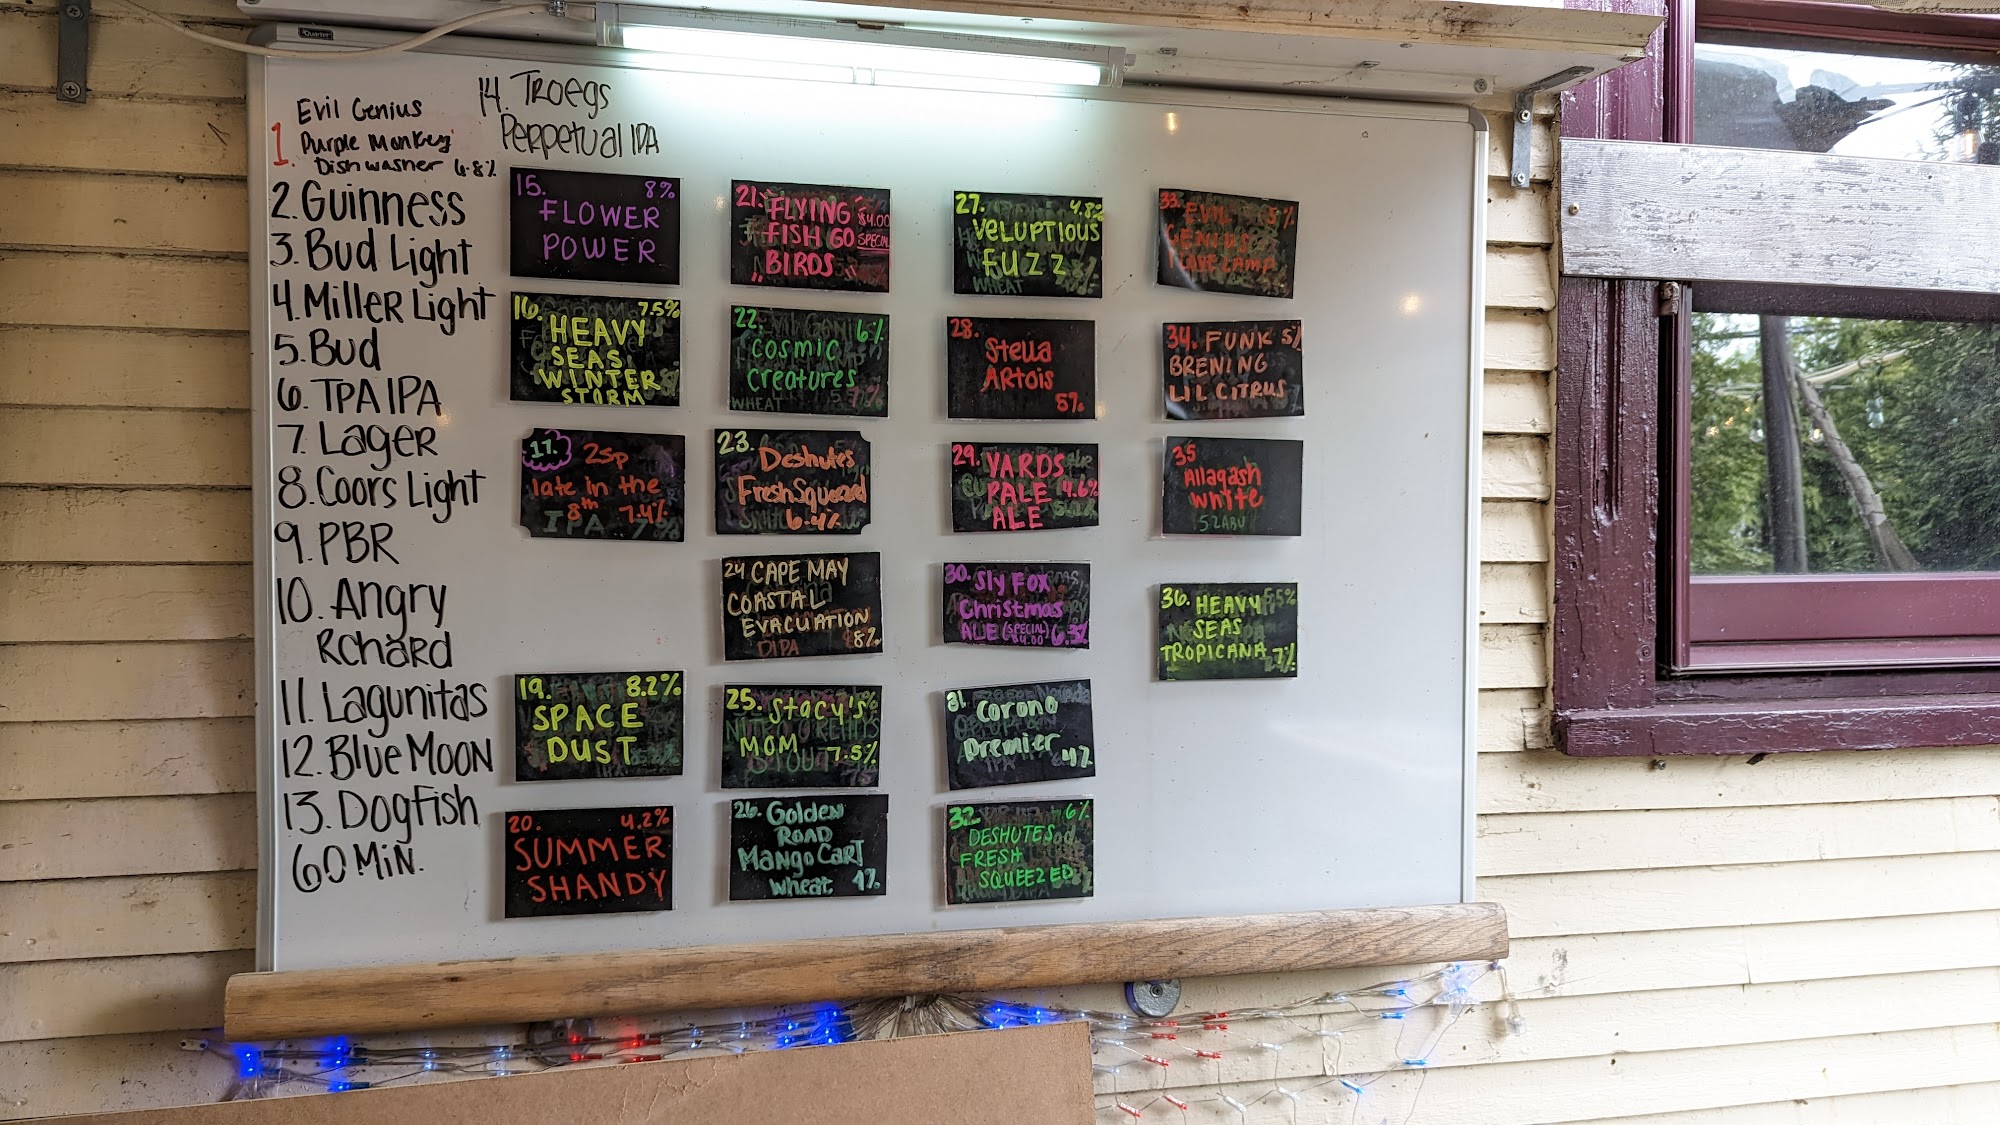 Quartet
Evil Genius
1. Purple Monkey
Dishwasher 6.8%
2. Guinness
3. Bud Light
4. Miller Light
5. Bud
6. TPA IPA
7. Lager
8. Coors Light
9. PBR
10. Angry
Rchard
11. Lagunitas
12. Blue Moon
13. Dogfish
60 Min.
14. Troegs
Perpetual IPA
15. 8%
FLOWER
POWER
16. 7.5%
HEAVY
SEAS
WINTER
STORM
17. 2sp
late in the
8th 7.4%
IPA
19. 8.2%
SPACE
DUST
20. 4.2%
SUMMER
SHANDY
21. FLYING $4.00
FISH GO SPECIAL
"BIRDS"
22. 6%
Cosmic
Creatures
WHEAT
23. Deshutes
Fresh Squeezed
6.4%
24 CAPE MAY
COASTAL
EVACUATION
DIPA 8%
25. Stacy's
MOM 7.5%
26. Golden
ROAD
Mango CarT
Wheat 4%
27. 4.8%
VeLUPTIOUS
FUZZ
WHEAT
28. Stella
ARTois
5%
29. YARDS
PALE 4.6%
ALE
30. Sly Fox
Christmas
ALE (SPECIAL) 6.3%
$4.00
31. Corona
Premier 4%
32. 6%
DESHUTES
FRESH
SQUEEZED
33. EVIL 5%
GENIUS
34. FUNK 5%
BRENING
LIL CITRUS
35 Allagash
White
5.2ABV
36. HEAVY
SEAS
TROPICANA 7%